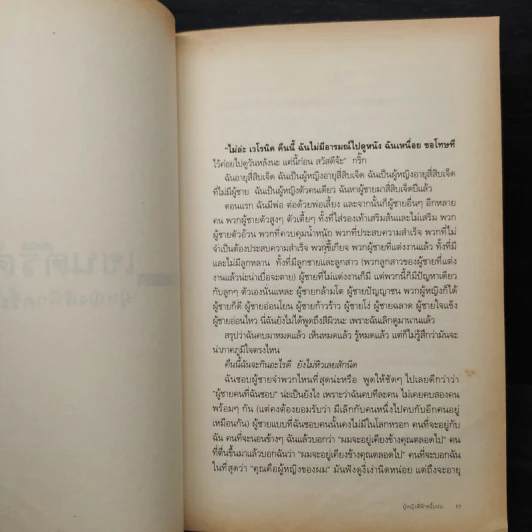 "ไม่ล่ะ เวโรนิค คืนนี้ ฉันไม่มีอารมณ์ไปดูหนัง ฉันเหนื่อย ขอโทษที
ไว้ค่อยไปดูวันหลังนะ แค่นี้ก่อน สวัสดีจ้ะ" กริ๊ก
ฉันอายุสี่สิบเจ็ด ฉันเป็นผู้หญิงอายุสี่สิบเจ็ด ฉันเป็นผู้หญิงอายุสี่สิบเจ็ด
ที่ไม่มีผู้ชาย ฉันเป็นผู้หญิงตัวคนเดียว ฉันหาผู้ชายมาสี่สิบเจ็ดปีแล้ว
ตอนแรก ฉันมีพ่อ ต่อด้วยพ่อเลี้ยง และจากนั้นก็ผู้ชายอื่นๆ อีกหลาย
คน พวกผู้ชายตัวสูงๆ ตัวเตี้ยๆ ทั้งที่ใส่รองเท้าเสริมส้นและไม่เสริม พวก
ผู้ชายตัวอ้วน พวกที่ควบคุมน้ำหนัก พวกที่ประสบความสำเร็จ พวกที่ไม่
จำเป็นต้องประสบความสำเร็จ พวกขี้เกียจ พวกผู้ชายที่แต่งงานแล้ว ทั้งที่มี
และไม่มีลูกหลาน ทั้งที่มีลูกชายและลูกสาว (พวกลูกสาวของผู้ชายที่แต่ง
งานแล้วน่าเบื่อจะตาย) ผู้ชายที่ไม่แต่งงานก็มี แต่พวกนี้ก็มีปัญหาเดียว
กับลูกๆ ตัวเองนั่นแหละ ผู้ชายกล้ามโต ผู้ชายปัญญาชน พวกผู้หญิงก็ได้
ผู้ชายก็ดี ผู้ชายอ่อนโยน ผู้ชายก้าวร้าว ผู้ชายโง่ ผู้ชายฉลาด ผู้ชายใจแข็ง
ผู้ชายอ่อนไหว นี่ฉันยังไม่ได้พูดถึงสีผิวนะ เพราะฉันเลิกดูมานานแล้ว
สรุปว่าฉันคบมาหมดแล้ว เห็นหมดแล้ว รู้หมดแล้ว แต่ก็ไม่รู้สึกว่ามันจะ
น่าภาคภูมิใจตรงไหน
คืนนี้ฉันจะกินอะไรดี ยังไม่หิวเลยสักนิด
ฉันชอบผู้ชายจำพวกไหนที่สุดน่ะหรือ พูดให้ชัดๆ ไปเลยดีกว่าว่า
"ผู้ชายคนที่ฉันชอบ" น่ะเป็นยังไง เพราะว่าฉันคบทีละคน ไม่เคยคบสองคน
พร้อมๆ กัน (แต่คงต้องยอมรับว่า มีเลิกกับคนหนึ่งไปคบกับอีกคนอยู่
เหมือนกัน) ผู้ชายแบบที่ฉันชอบคนนั้นคงไม่มีในโลกหรอก คนที่จะอยู่กับ
ฉัน คนที่จะนอนข้างๆ ฉันแล้วบอกว่า "ผมจะอยู่เคียงข้างคุณตลอดไป" คน
ที่ตื่นขึ้นมาแล้วบอกฉันว่า "ผมจะอยู่เคียงข้างคุณตลอดไป" คนที่จะบอกฉัน
ในที่สุดว่า "คุณคือผู้หญิงของผม" มันฟังดูงี่เง่านิดหน่อย แต่ถึงจะอายุ
ผู้หญิงสีฟ้าครึ้มฝน 17